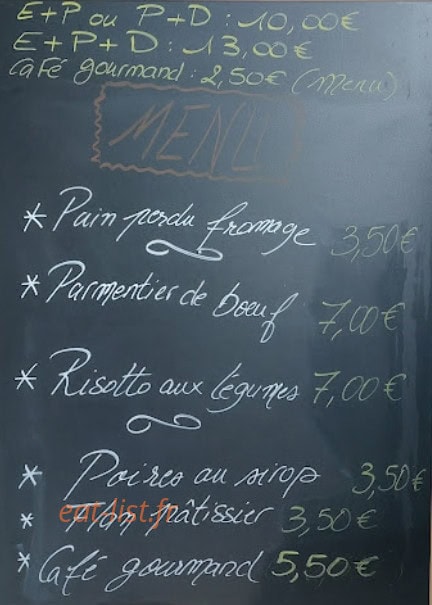 E+P ou P+D : 10,00€
E+P+D : 13,00€
Café gourmand : 2,50€ (Menu)
MENU
* Pain perdu fromage 3,50€
* Parmentier de boeuf 7,00€
* Risotto aux légumes 7,00€
* Poires au sirop 3,50€
* Flan pâtissier 3,50€
eat-list.fr
* Café gourmand 5,50€